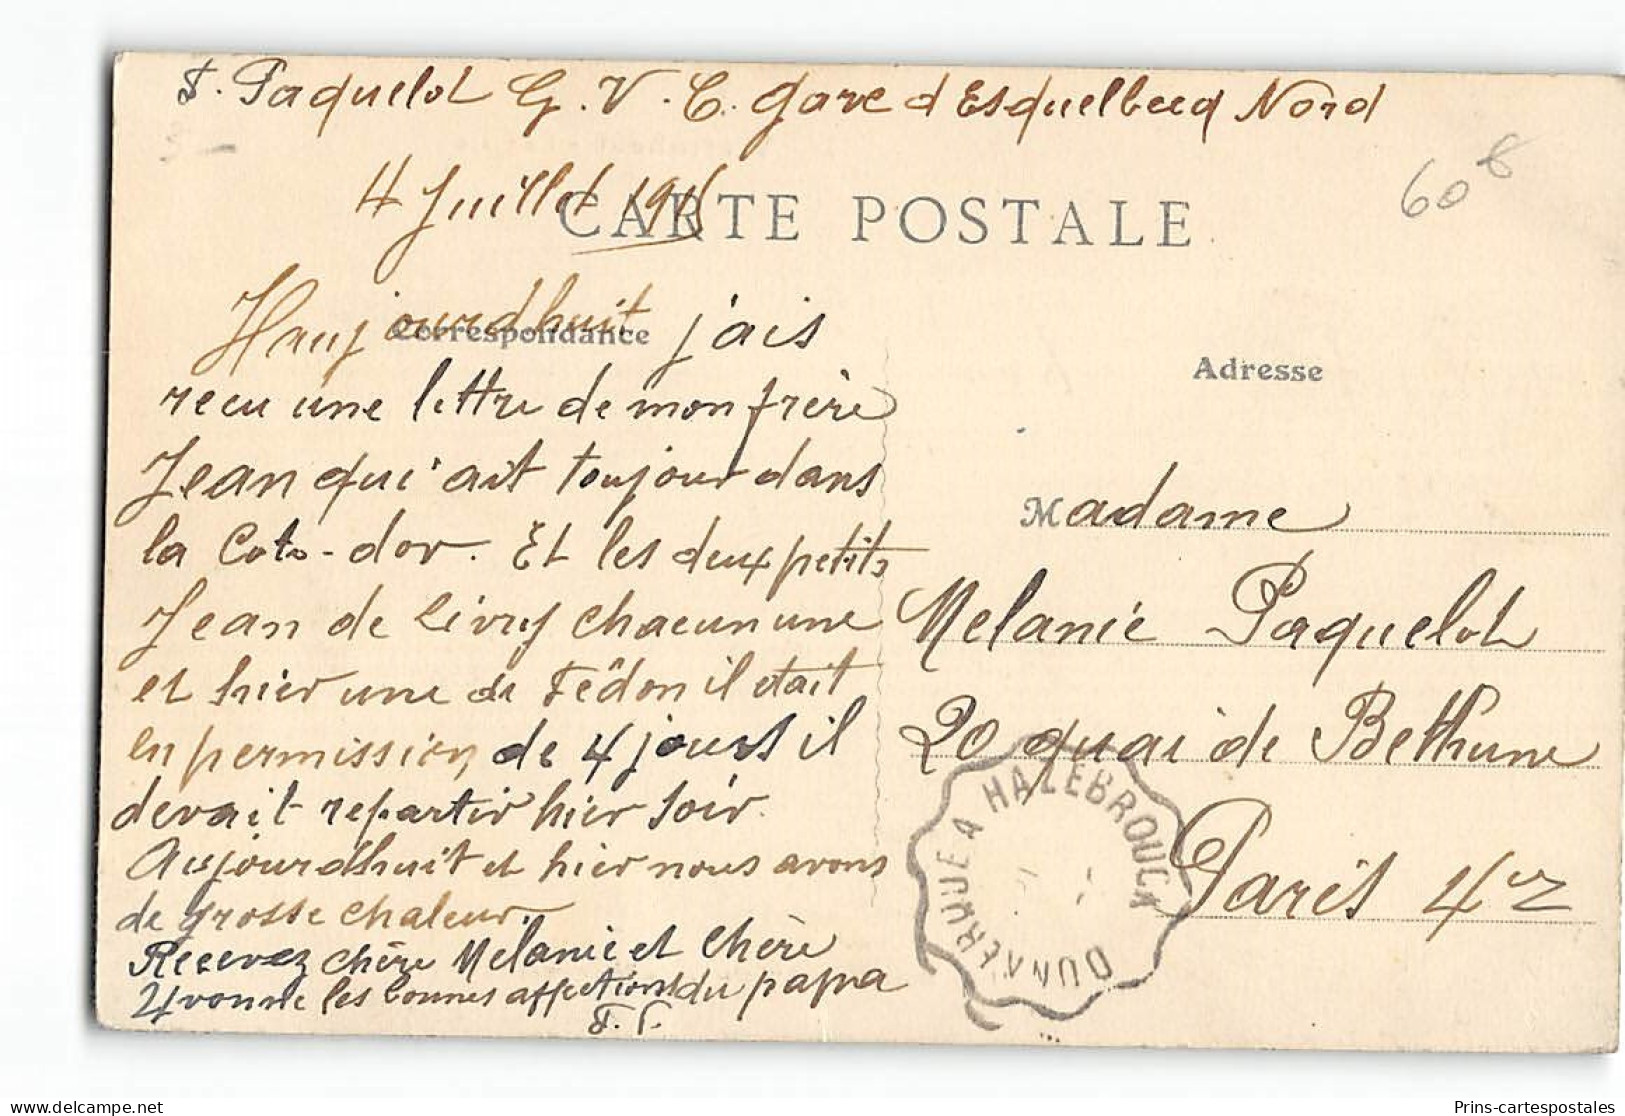 F. Paquelot G. V. C. gare d Esquelbecq Nord
4 Juillet 1916
CARTE POSTALE
60 8
Haujourdhuit j'ais
Correspondance
recu une lettre de mon frère
Jean qui ait toujour dans
la Cote-dor. Et les deux petits
Jean de Livry chacun une
et hier une de Fédon il etait
en permission de 4 jours il
devait repartir hier soir.
Aujourdhuit et hier nous avons
de grosse chaleur.
Recevez chère Melanie et chère
Yvonne les bonnes affections du papa
F. P.
Adresse
Madame
Melanie Paquelot
20 quai de Bethune
Paris 4er
DUNKERQUE A HAZEBROUCK
Prins-cartespostales